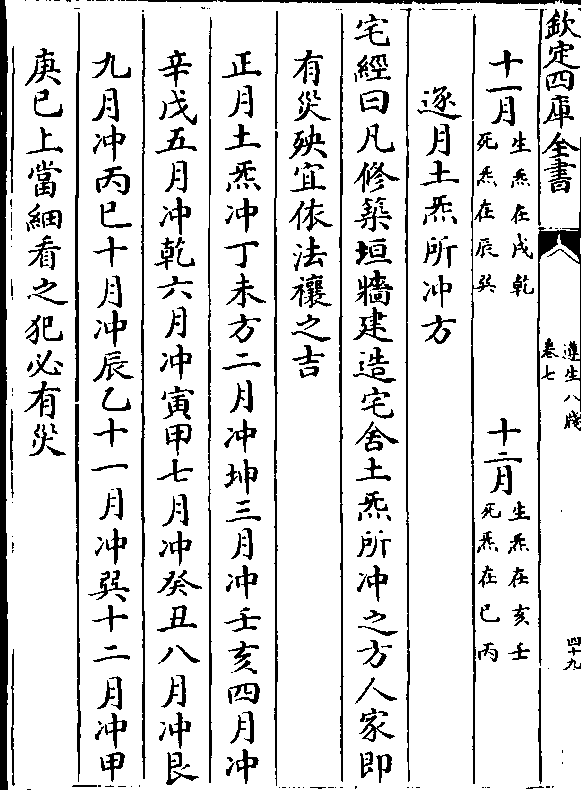 欽定四庫全書
遵生八牋
卷七
四十九
十一月
生炁在戌乾
死炁在辰巽
十二月
生炁在亥壬
死炁在巳丙
逐月土炁所冲方
宅經曰凡修築垣牆建造宅舍土炁所冲之方人家即
有災殃宜依法禳之吉
正月土炁冲丁未方二月冲坤三月冲壬亥四月冲
辛戌五月冲乾六月冲寅甲七月冲癸丑八月冲艮
九月冲丙巳十月冲辰乙十一月冲巽十二月冲甲
庚已上當細看之犯必有災